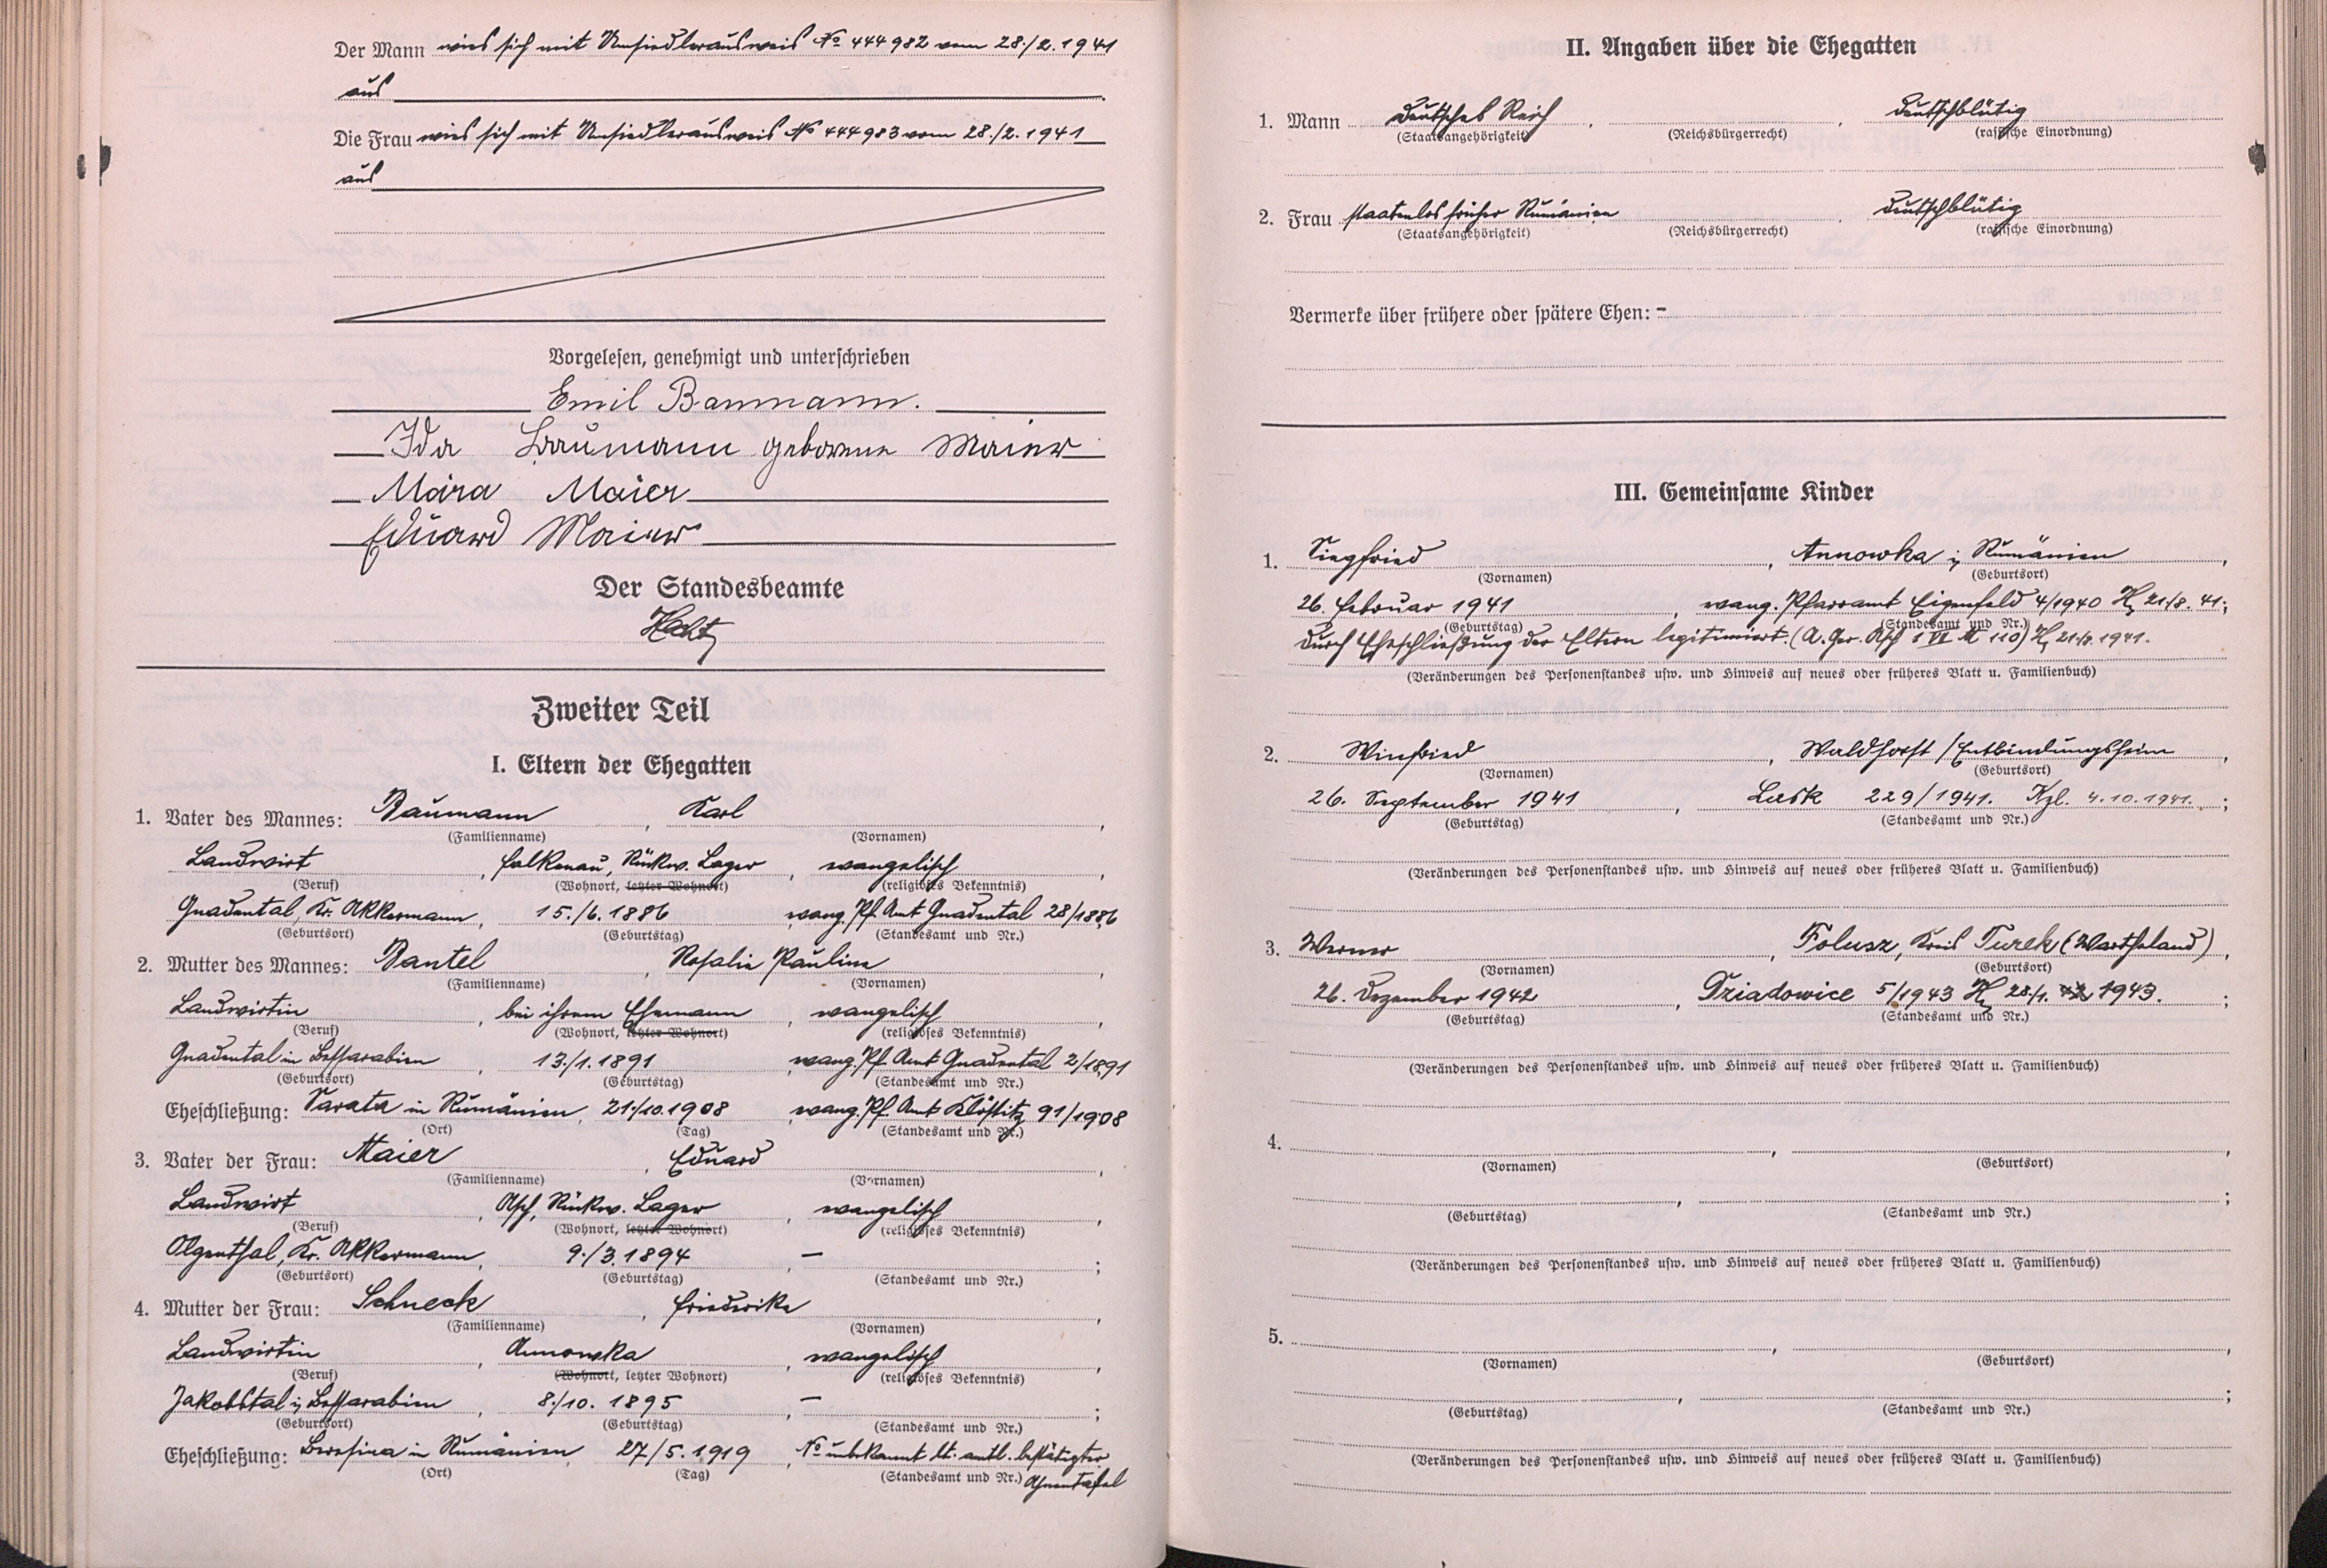 Der Mann wies sich mit Umsiedlerausweis No 444982 vom 28./2.1941
aus
Die Frau wies sich mit Umsiedlerausweis No 444983 vom 28./2.1941
aus
Vorgelesen, genehmigt und unterschrieben
Emil Baumann.
Ida Baumann geborene Maier
Maria Maier
Eduard Maier
Der Standesbeamte
Zweiter Teil
I. Eltern der Ehegatten
1. Vater des Mannes: Baumann, Karl
(Familienname) (Vornamen)
Landwirt, Falkenau, Rückw. Lager, evangelisch,
(Beruf) (Wohnort, letzter Wohnort) (religiöses Bekenntnis)
Gnadental, Kr. Akkermann, 15./6.1886, evang. Pf. Amt Gnadental 28/1886
(Geburtsort) (Geburtstag) (Standesamt und Nr.)
2. Mutter des Mannes: Bantel, Rosalie Pauline,
(Familienname) (Vornamen)
Landwirtin, bei ihrem Ehemann, evangelisch,
(Beruf) (Wohnort, letzter Wohnort) (religiöses Bekenntnis)
Gnadental in Bessarabien, 13./1.1891, evang. Pf. Amt Gnadental 2/1891
(Geburtsort) (Geburtstag) (Standesamt und Nr.)
Eheschließung: Sarata in Rumänien, 21./10.1908, evang. Pf. Amt Klöstitz 91/1908
(Ort) (Tag) (Standesamt und Nr.)
3. Vater der Frau: Maier, Eduard,
(Familienname) (Vornamen)
Landwirt, Asch, Rückw. Lager, evangelisch,
(Beruf) (Wohnort, letzter Wohnort) (religiöses Bekenntnis)
Olgenthal, Kr. Akkermann, 9./3.1894, – ;
(Geburtsort) (Geburtstag) (Standesamt und Nr.)
4. Mutter der Frau: Schneck, Friederike,
(Familienname) (Vornamen)
Landwirtin, Annowka, evangelisch,
(Beruf) (Wohnort, letzter Wohnort) (religiöses Bekenntnis)
Jakobstal i/ Bessarabien, 8./10. 1895, – ;
(Geburtsort) (Geburtstag) (Standesamt und Nr.)
Eheschließung: Beresina in Rumänien, 27/5.1919, No unbekannt lt. amtl. bestätigter
(Ort) (Tag) (Standesamt und Nr.) Ahnentafel
II. Angaben über die Ehegatten
1. Mann Deutsches Reich, , deutschblütig
(Staatsangehörigkeit) (Reichsbürgerrecht) (rassische Einordnung)
2. Frau staatenlos früher Rumänien , deutschblütig
(Staatsangehörigkeit) (Reichsbürgerrecht) (rassische Einordnung)
Vermerke über frühere oder spätere Ehen: –
III. Gemeinsame Kinder
1. Siegfried, Annowka i/ Rumänien,
(Vornamen) (Geburtsort)
26. Februar 1941, evang. Pfarramt Eigenfeld 4/1940 21/8. 41;
(Geburtstag) (Standesamt und Nr.)
durch Eheschließung der Eltern legitimiert. (A. Ger. Asch 1 VI M 110) 21/8.1941.
(Veränderungen des Personenstandes usw. und Hinweis auf neues oder früheres Blatt u. Familienbuch)
2. Winfried, Waldhorst / Entbindungsheim,
(Vornamen) (Geburtsort)
26. September 1941, Lask 229/1941. 4.10.1941. ;
(Geburtstag) (Standesamt und Nr.)
(Veränderungen des Personenstandes usw. und Hinweis auf neues oder früheres Blatt u. Familienbuch)
3. Werner, Folusz, Kreis Turek (Wartheland),
(Vornamen) (Geburtsort)
26. Dezember 1942, Dziadowice 5/1943 28/1. 1943. ;
(Geburtstag) (Standesamt und Nr.)
(Veränderungen des Personenstandes usw. und Hinweis auf neues oder früheres Blatt u. Familienbuch)
4. , ,
(Vornamen) (Geburtsort)
, ;
(Geburtstag) (Standesamt und Nr.)
(Veränderungen des Personenstandes usw. und Hinweis auf neues oder früheres Blatt u. Familienbuch)
5. , ,
(Vornamen) (Geburtsort)
, ;
(Geburtstag) (Standesamt und Nr.)
(Veränderungen des Personenstandes usw. und Hinweis auf neues oder früheres Blatt u. Familienbuch)